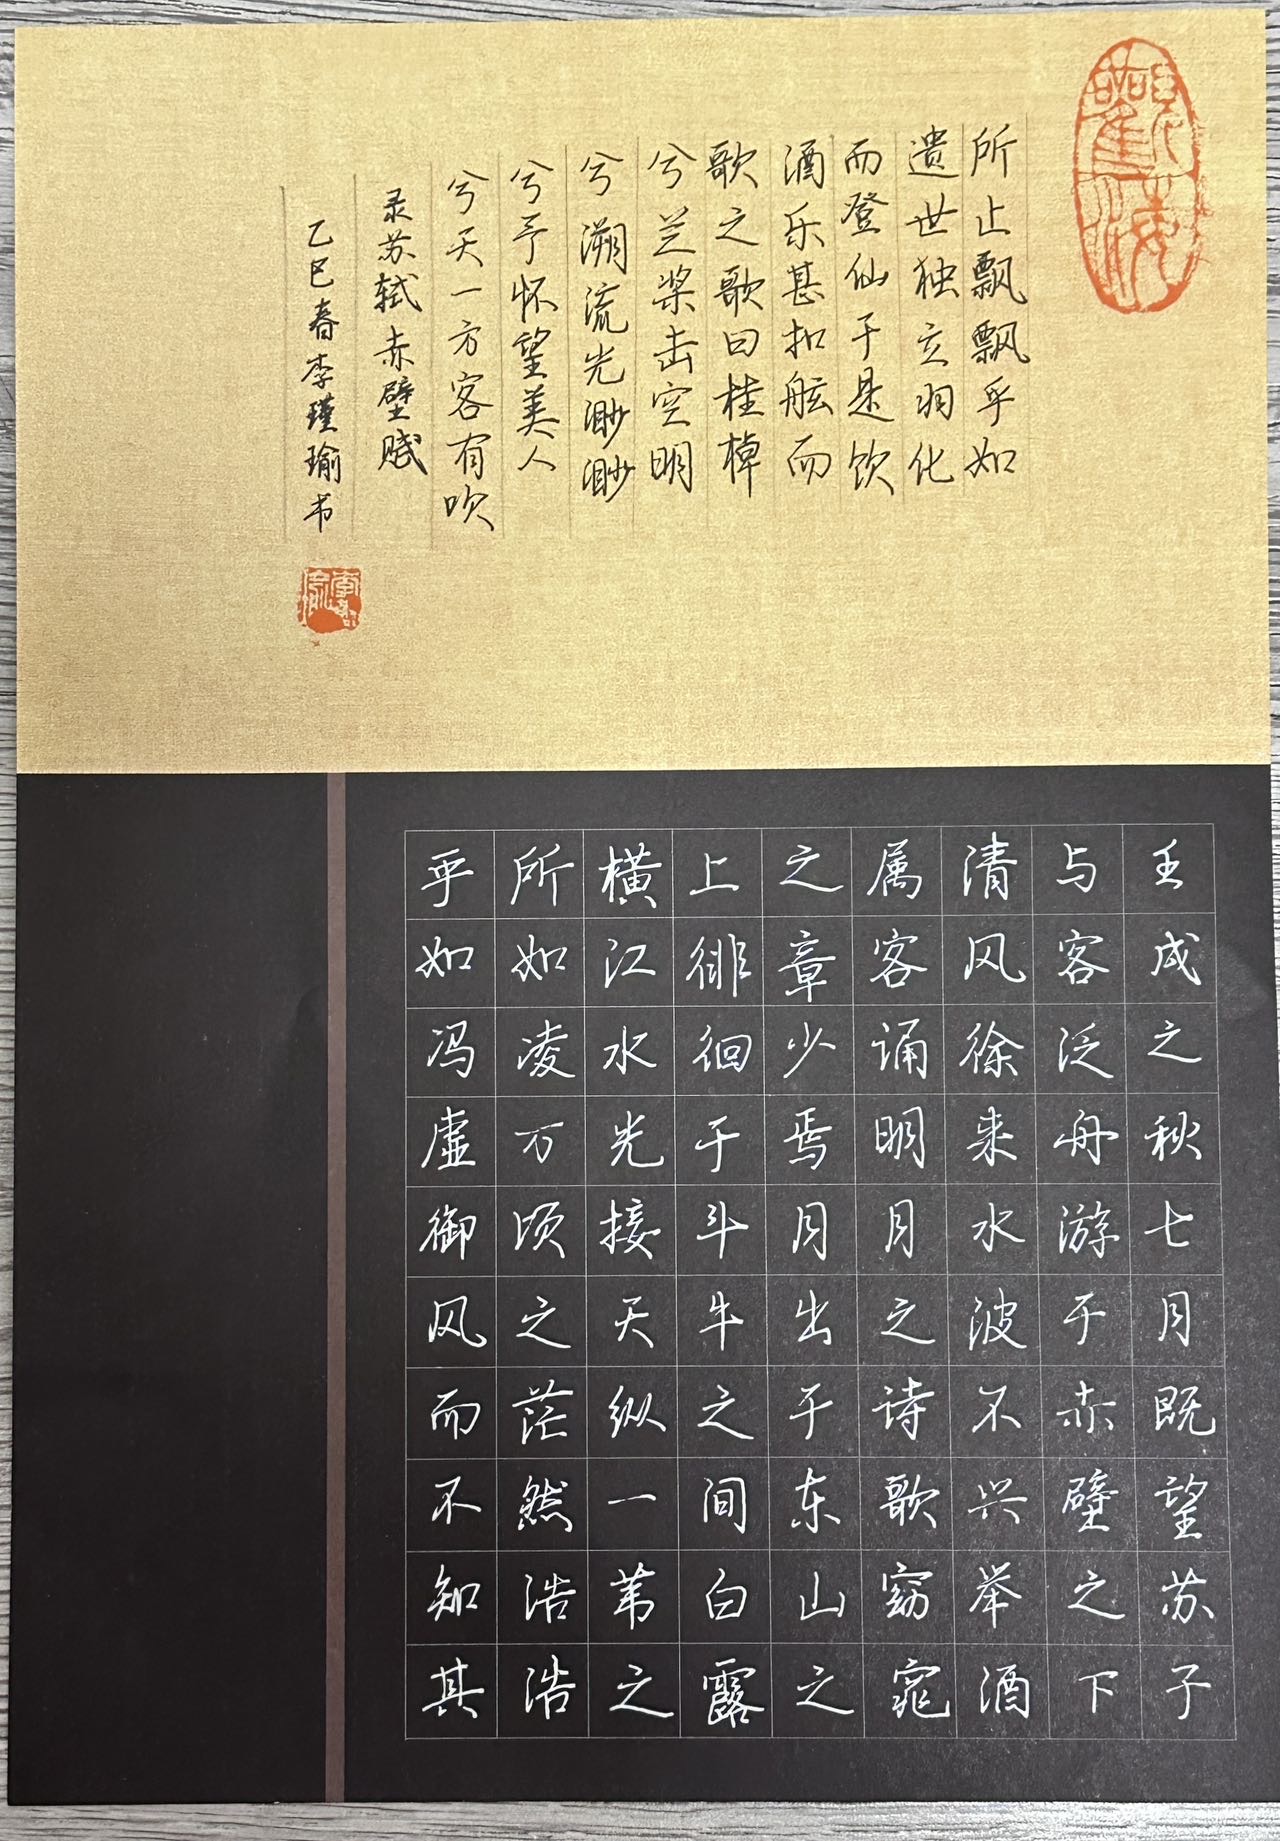 壬戌之秋七月既望苏子
与客泛舟游于赤壁之下
清风徐来水波不兴举酒
属客诵明月之诗歌窈窕
之章少焉月出于东山之
上徘徊于斗牛之间白露
横江水光接天纵一苇之
所如凌万顷之茫然浩浩
乎如冯虚御风而不知其
觀海
所止飘飘乎如
遗世独立羽化
而登仙于是饮
酒乐甚扣舷而
歌之歌曰桂棹
兮兰桨击空明
兮溯流光渺渺
兮予怀望美人
兮天一方客有吹
录苏轼赤壁赋
乙巳春李瑾瑜书